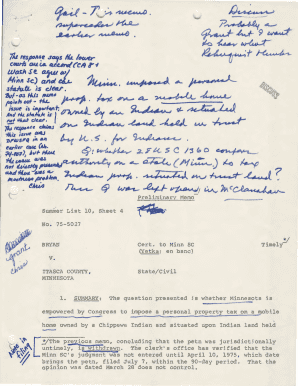 Gail - This memo
supersedes the
earlier memo.
Discuss
Probably a
Grant but I want
to hear what
Rehnquist thinks
The response says the lower
courts are in accord (CA 8 &
Wash St agree w/
Minn SC) and the
statute is clear.
But - as this memo
points out - the
issue is important
and the statute is
not clear.
The response claims
this issue was
present in an
earlier case
but there
the issue was
not directly presented
and there was a
mootness problem.
Chris
Minn. imposed a personal
prop. tax on a mobile home
owned by an Indian & situated
on Indian land held in trust
by U.S. for Indians.
Q: whether 28 USC 1360 confers
authority on a State (Minn.) to tax
Indian prop. situated on trust land?
This Q was left open in McClanahan
Preliminary Memo
Summer List 10, Sheet 4
No. 75-5027
BRYAN
Cert. to Minn SC
Timely
V.
ITASCA COUNTY,
MINNESOTA
State/Civil
grant
Chris
1. SUMMARY: The question presented is whether Minnesota is
empowered by Congress to impose a personal property tax on a mobile
home owned by a Chippewa Indian and situated upon Indian land held
*/The previous memo, concluding the petn was jurisdictionally
untimely, is withdrawn. The clerk's office has verified that the
Minn SC's judgment was not entered until April 10, 1975, which date
brings the petn, filed July 7, within the 90-day period. That the
opinion was dated March 28 does not control.